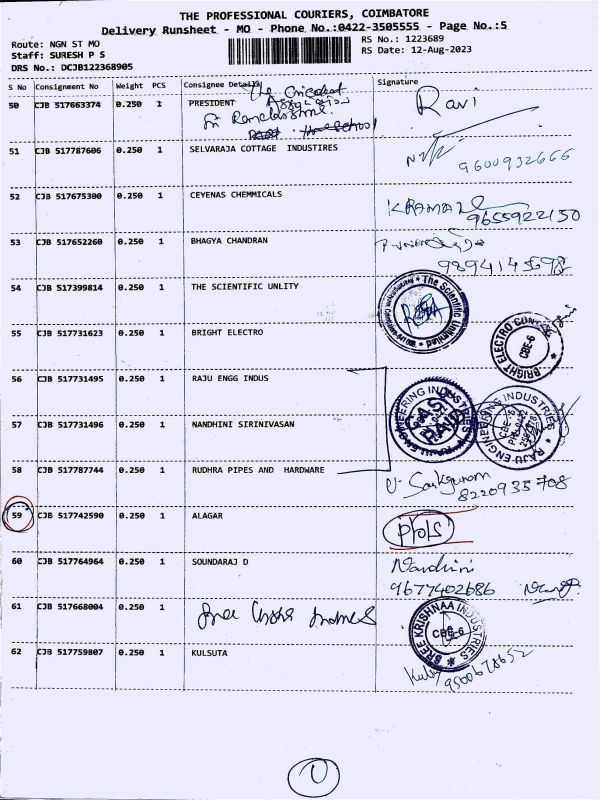 THE PROFESSIONAL COURIERS, COIMBATORE
Delivery Runsheet - MO - Phone No.:0422-3505555 - Page No.:5
Route: NGN ST MO
Staff: SURESH P S
DRS No.: DCJB122368905
RS No.: 1223689
RS Date: 12-Aug-2023
S No Consignment No Weight PCS Consignee Details Signature
50 CJB 517663374 0.250 1 PRESIDENT The Association Sri School Ravi
51 CJB 517787606 0.250 1 SELVARAJA COTTAGE INDUSTIRES 9600932666
52 CJB 517675300 0.250 1 CEYENAS CHEMMICALS 9655922150
53 CJB 517652260 0.250 1 BHAGYA CHANDRAN 9894145698
54 CJB 517399814 0.250 1 THE SCIENTIFIC UNLITY The Scientific
55 CJB 517731623 0.250 1 BRIGHT ELECTRO BRIGHT ELECTRO CBE-6
56 CJB 517731495 0.250 1 RAJU ENGG INDUS
57 CJB 517731496 0.250 1 NANDHINI SIRINIVASAN RAJU ENGINEERING INDUSTRIES CBE-6
58 CJB 517787744 0.250 1 RUDHRA PIPES AND HARDWARE 8220935708
59 CJB 517742590 0.250 1 ALAGAR
60 CJB 517764964 0.250 1 SOUNDARAJ D Nandhini 9677402686
61 CJB 517668004 0.250 1 Sree SREE KRISHNAA INDUSTRIES CBE-6
62 CJB 517759807 0.250 1 KULSUTA 9500678652